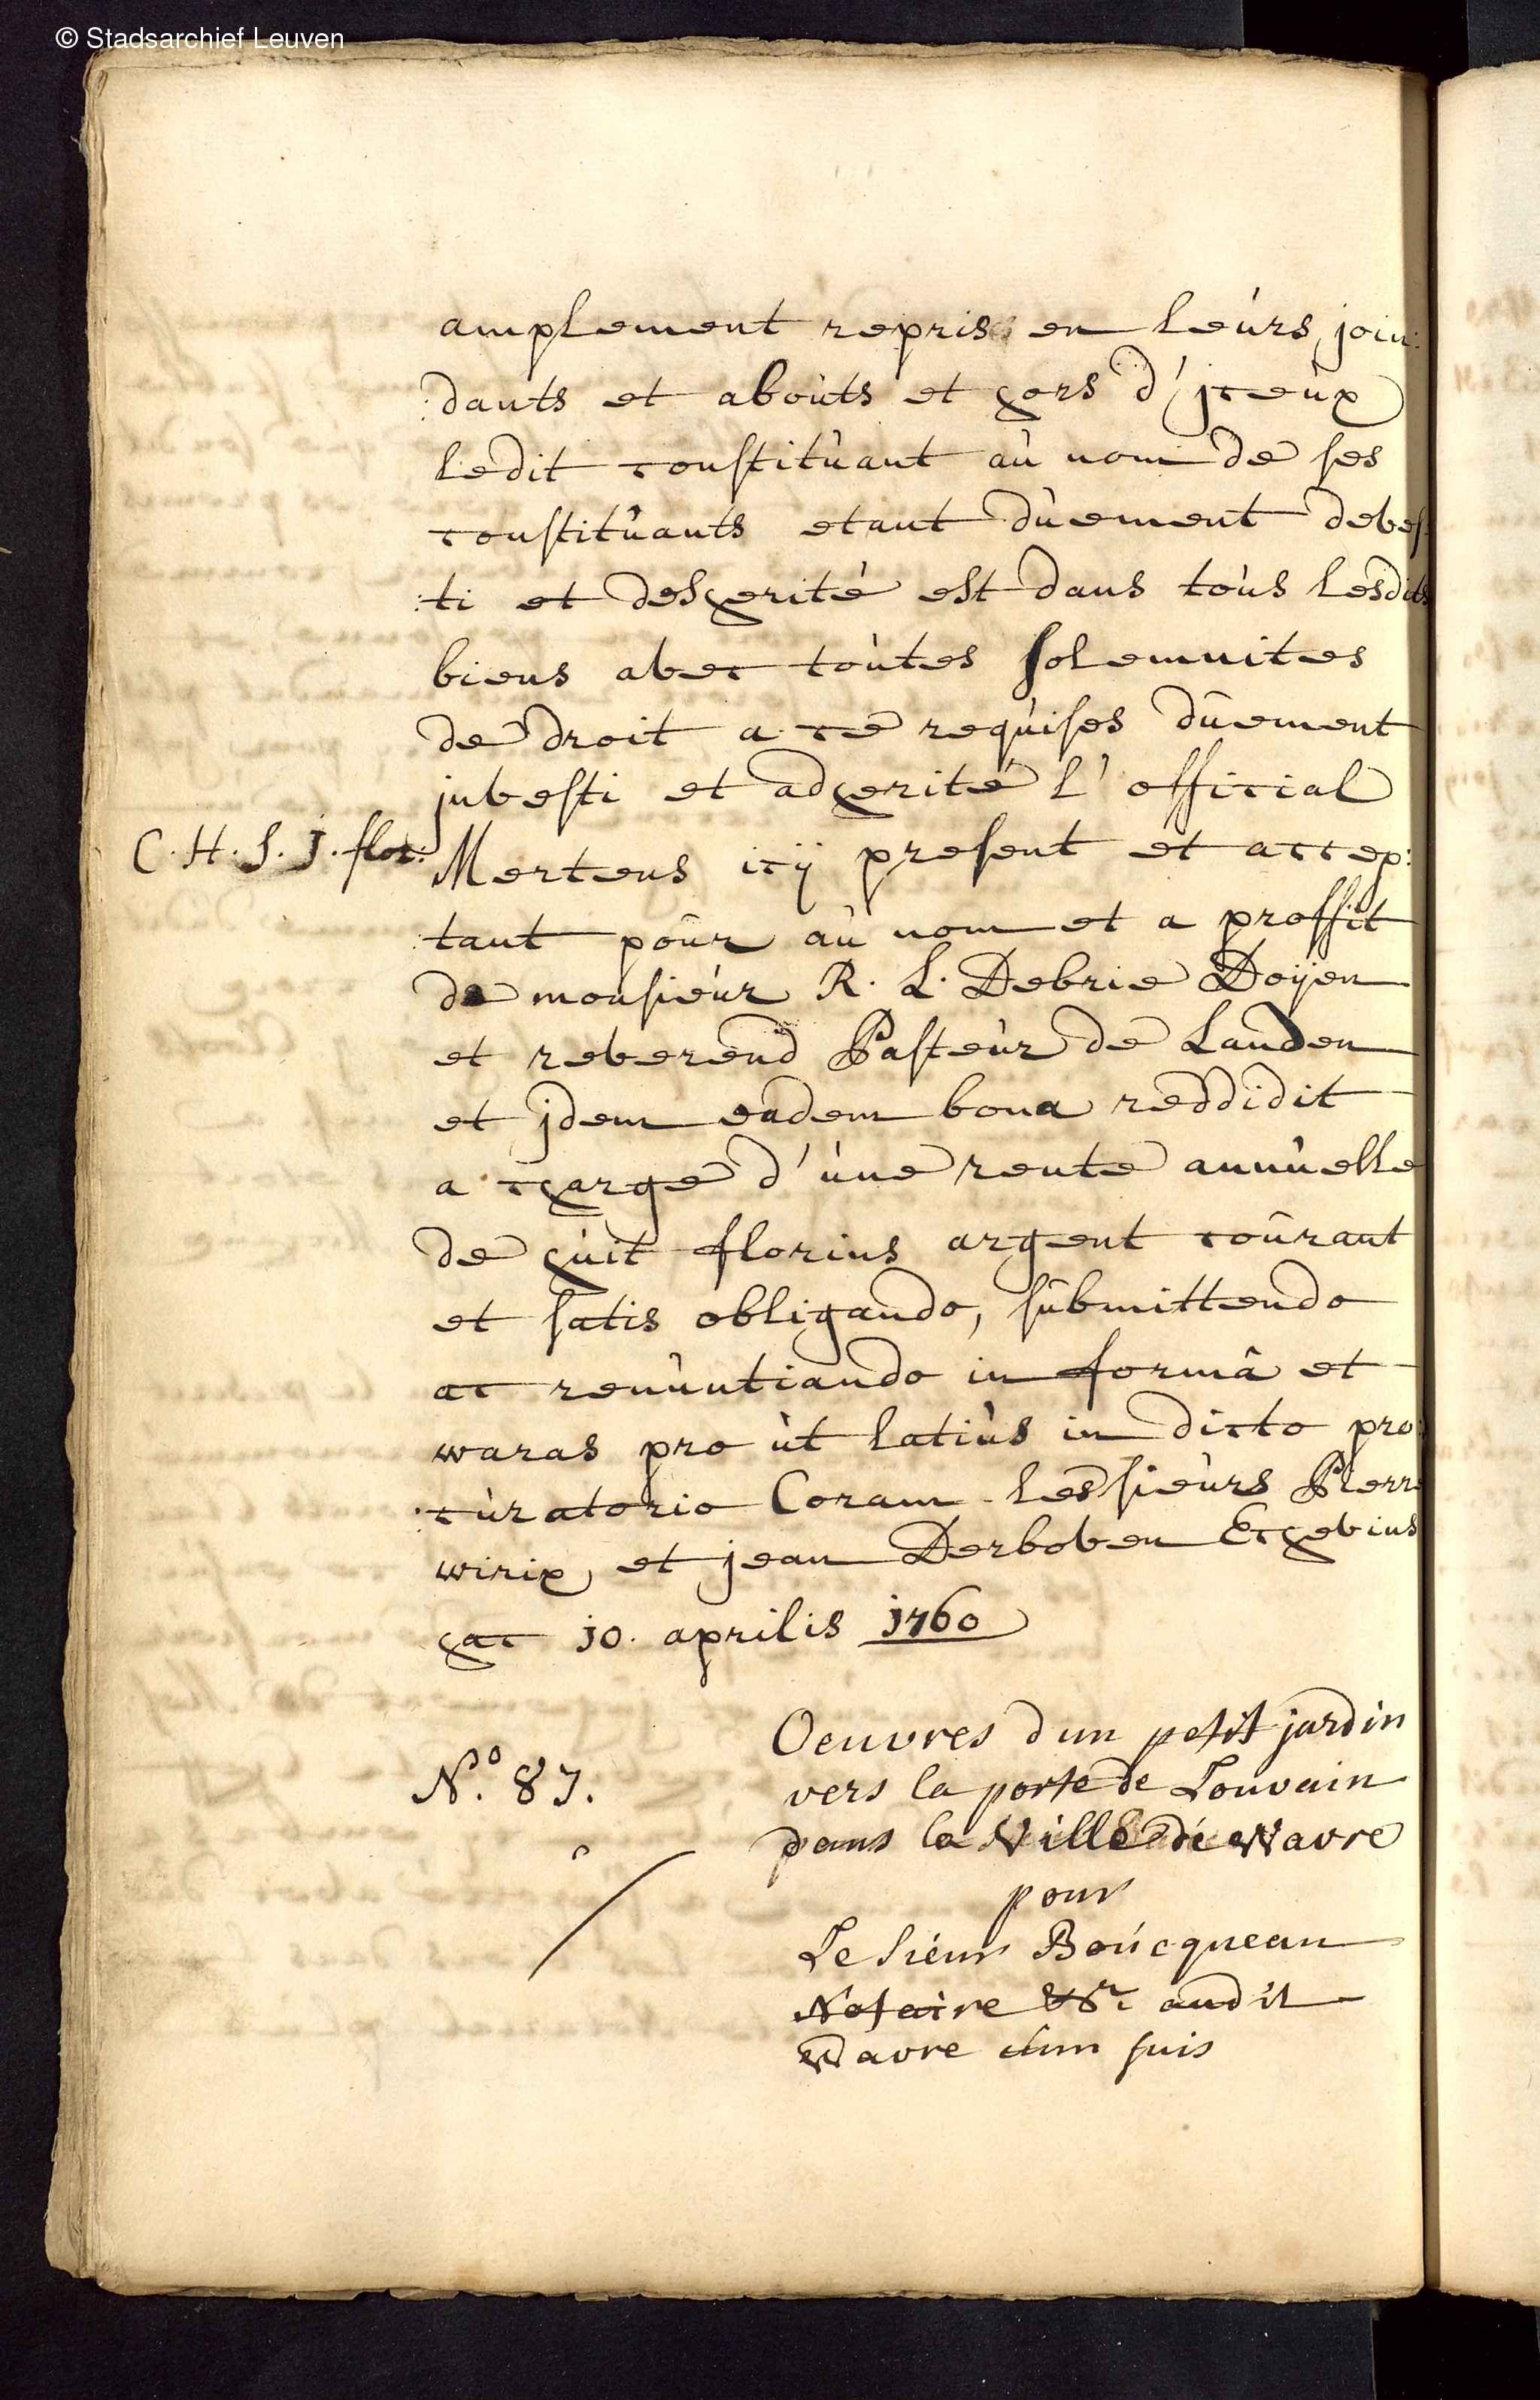 © Stadsarchief Leuven
amplement repris en leurs join:
:dants et abouts et hors d'jceux
ledit constituant au nom de ses
constituants etant dúement deves:
:ti et desherité est dans tous lesdits
biens avec toutes solemnites
de droit a ce requises dúement
jnvesti et adherité l'official
C. H. S. J. flor: Mertens icÿ present et accep:
:tant pour au nom et a proffit
de monsieur R. L. Debrie Doÿen
et reverend Pasteur de Landen
et jdem eadem bona reddidit
a charge d'une rente annuelle
de huit florins argent courant
et satis obligando, submittendo
ac renuntiando in formâ et
waras pro ut latius in dicto pro:
:curatorio Coram les sieurs Pierre
wirix et jean Derboven Echevins
hac 10. aprilis 1760
Oeuvres dun petit jardin
N.º 87. vers la porte de Louvain
dans la Ville de Wavre
pour
Le Siéur Boúcqueau
Notaire &ª audit
Wavre cum suis